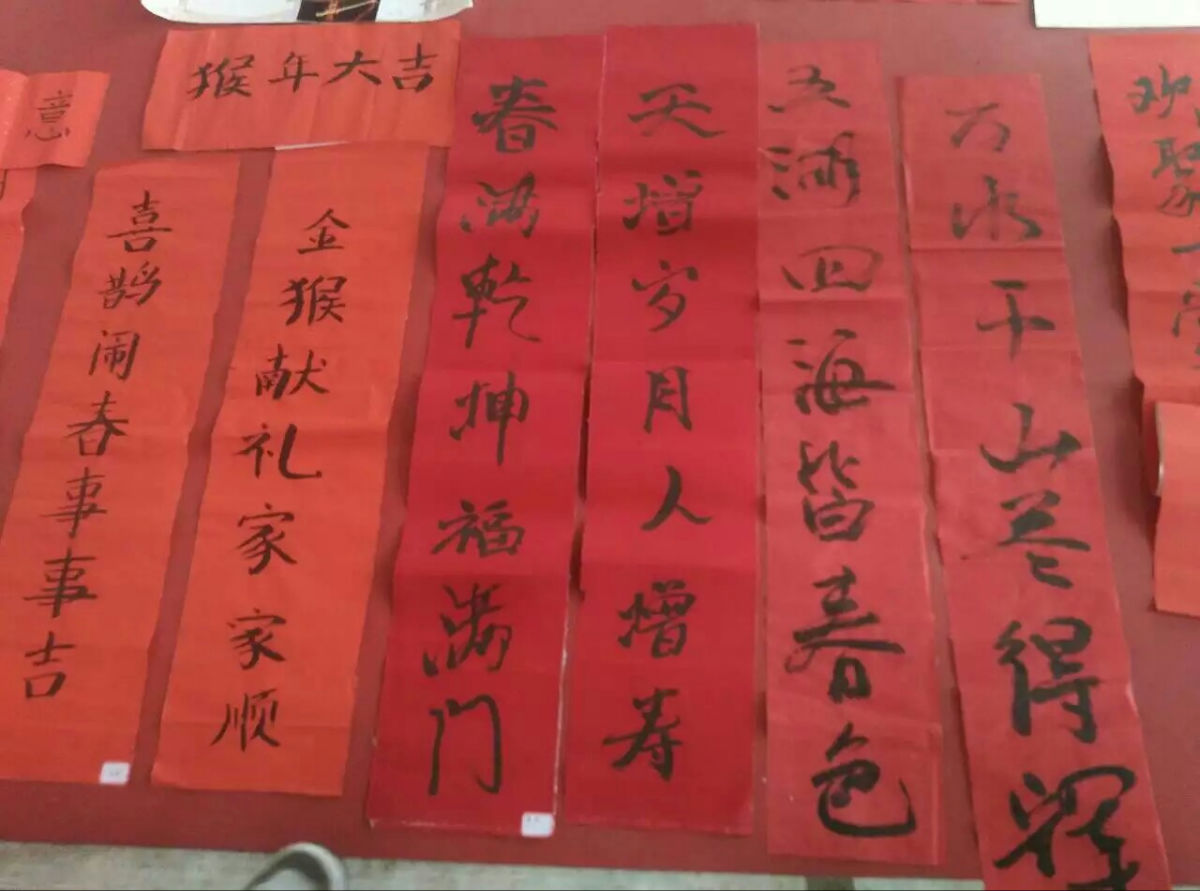 猴年大吉
金猴献礼家家顺
喜鹊闹春事事吉
天增岁月人增寿
春满乾坤福满门
万水千山尽得辉
五湖四海皆春色
欢聚一堂
意